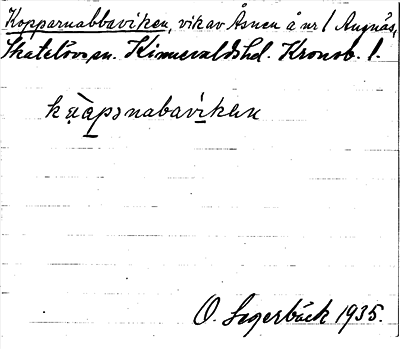 Kopparnabbaviken, vik av Åsnen å nr 1 Angnäs,
Skatelövs sn. Kinnevalds hd. Kronob. l.
kᴔàpɔnabavíken
O. Segerbäck 1935.